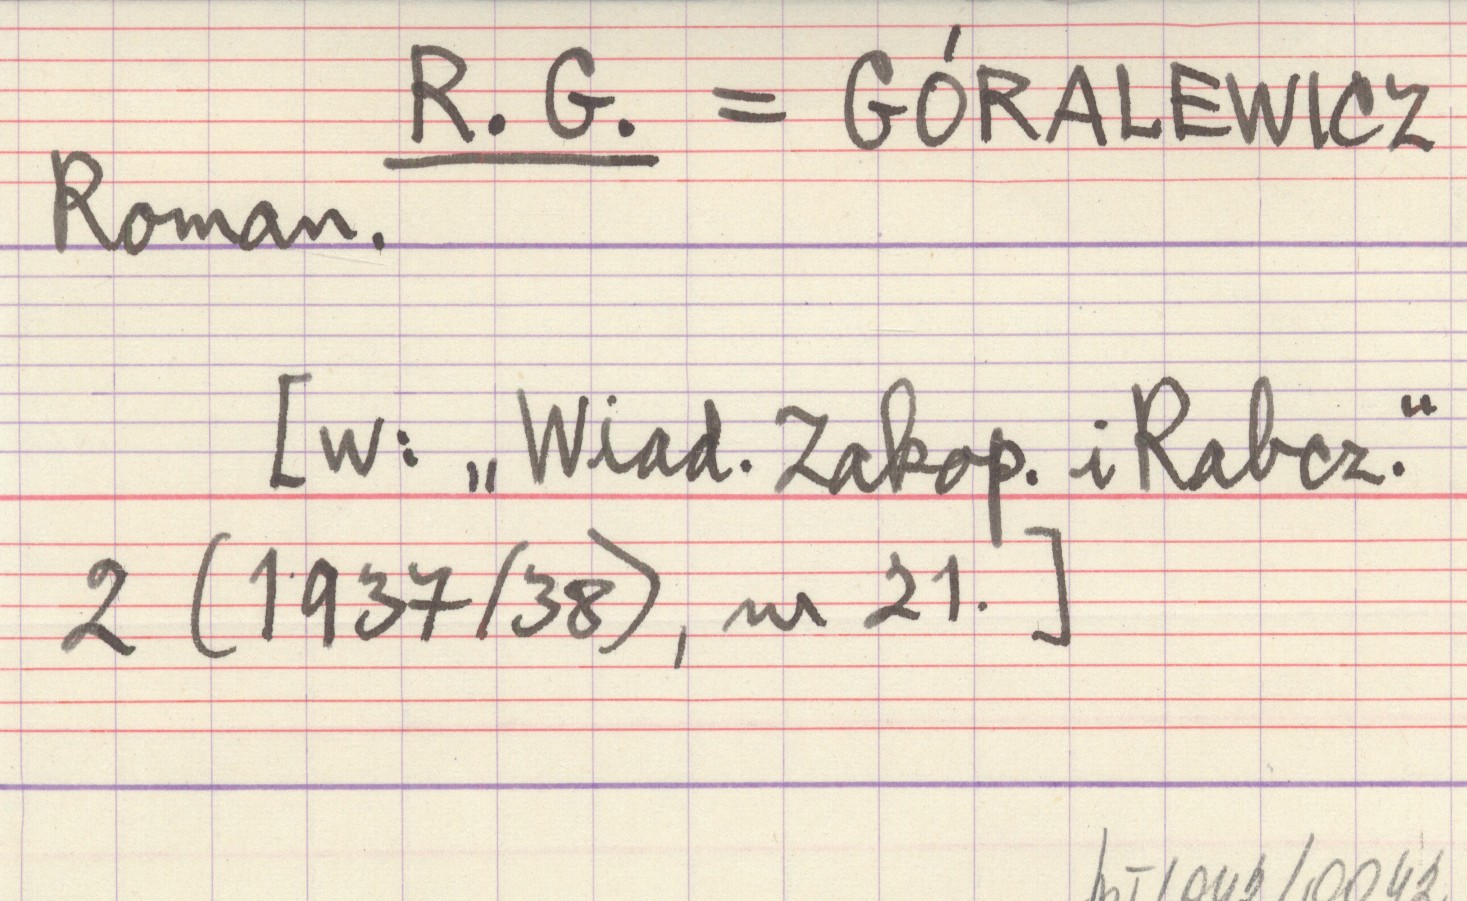 R. G. = GÓRALEWICZ
Roman.
[w: „Wiad. Zakop. i Rabcz.“
2 (1937/38), nr 21.]